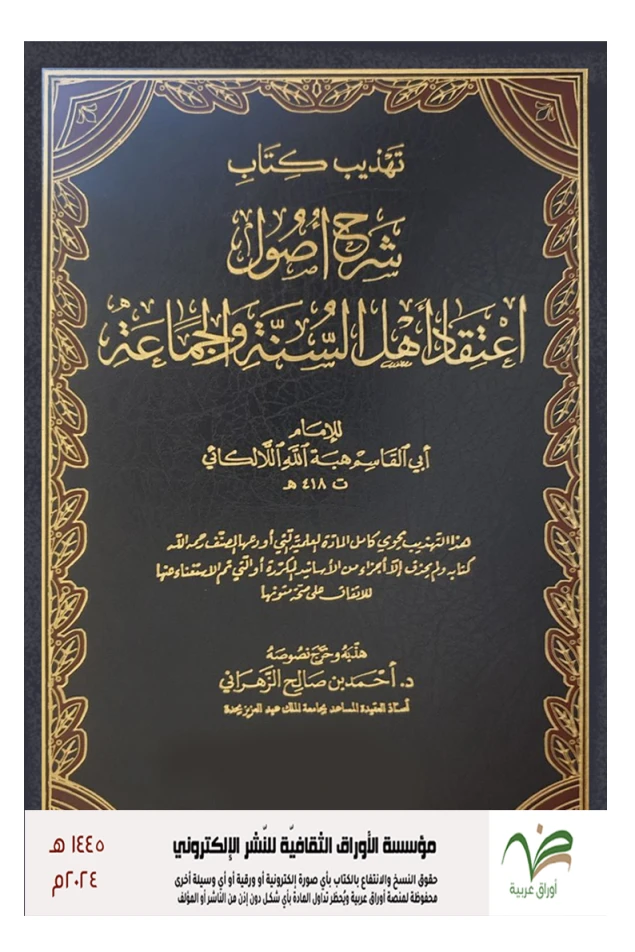 تهذيب كتاب
شرح أصول
اعتقاد أهل السنة والجماعة
للإمام
أبي القاسم هبة الله اللالكائي
ت ٤١٨ هـ
هذا التهذيب يحوي كامل المادة العلمية التي أودعها المصنف رحمه الله
كتابه ولم يحذف إلا أجزاء من الأسانيد المكررة أو التي تم الاستغناء عنها
للاتفاق على صحة متونها
هذبه وخرج نصوصه
د. أحمد بن صالح الزهراني
أستاذ العقيدة المساعد بجامعة الملك عبد العزيز بجدة
مؤسسة الأوراق الثقافية للنشر الإلكتروني
حقوق النسخ والانتفاع بالكتاب بأي صورة إلكترونية أو ورقية أو أي وسيلة أخرى
محفوظة لمنصة أوراق عربية ويُحظر تداول المادة بأي شكل دون إذن من الناشر أو المؤلف
١٤٤٥ هـ
٢٠٢٤م
أوراق عربية